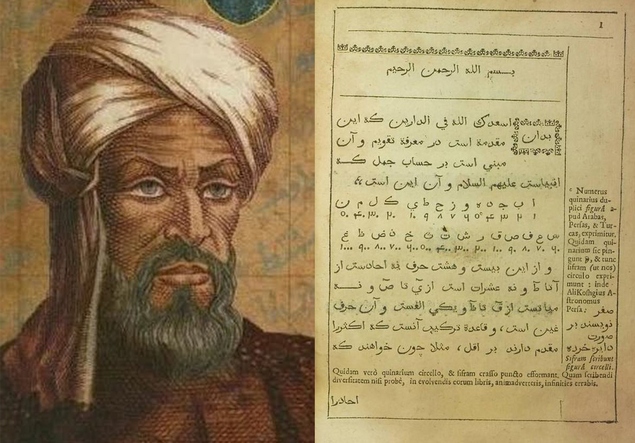 1
بسم الله الرحمن الرحيم
بدان
اسعدك الله في الدارين كه اين
مقدمة است در معرفة تقويم و آن
مبني است بر حساب جمل كه
عليهم السلام و آن اين است
ا ب ج د ه و ز ح ط ي ك ل م ن
س ع ف ص ق ر ش ت ث خ ذ ض ظ غ
و از اين بيست و هشت حرف نه احادست از
آ تا ط و نه عشرات است از ي تا ص و نه
ميانست از ق تا ظ و يكي الفست و آن حرف
غين است، و قاعدة تركيب آنست كه اكثر را
مقدم دارند بر اقل، مثلا چون خواهند كه
احاد را
* Numerus
quinarius du-
plici figurâ a-
pud Arabas,
Persas, & Tur-
cas, exprimitur.
Quidam qui-
narium sic pin-
gunt & tunc
sifram (ut nos)
circulo expri-
munt; inde
Ali Koshgius A-
stronomus
Persa:
صفر
نويسند بر
صورت
دائره خرده
Sifram scribunt
figurâ circelli.
Quidam verò quinarium circello, & sifram crasso puncto efformant. Quam scribendi
diversitatem nisi probè, in evolvendis eorum libris, animadverteris, infinities errabis.